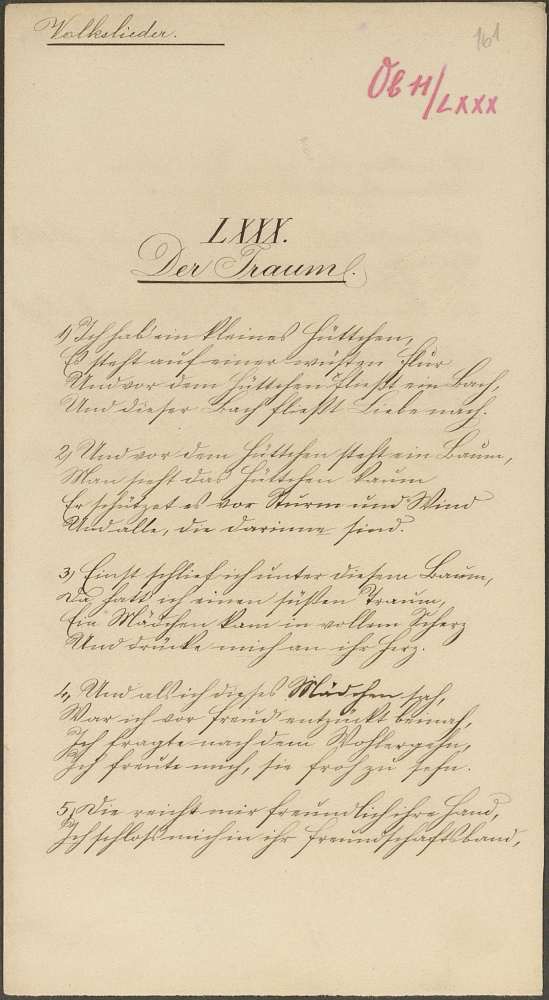 Volkslieder.
161
Ob 11/LXXX
LXXX.
Der Traum.
1, Ich hab ein kleines Hüttchen,
Es steht auf einer wüsten Flur
Und vor dem Hüttchen fließt ein Bach,
Und dieser Bach fließt Liebe nach.
2, Und vor dem Hüttchen steht ein Baum,
Man sieht das Hüttchen kaum
Er schützet es vor Sturm und Wind
Und alle, die darinne sind.
3, Einst schlief ich unter diesem Baum,
Da hatt ich einen süßen Traum,
Ein Mädchen kam in vollem Scherz
Und drücke mich an ihr Herz.
4, Und als ich dieses Mädchen sah,
War ich vor Freud entzückt beinah,
Ich fragte nach dem Wohlergehn,
Ich freute mich, sie froh zu sehn.
5, Die reicht mir freundlich ihre Hand,
Ich schloß mich in ihr Freundschaftsband,